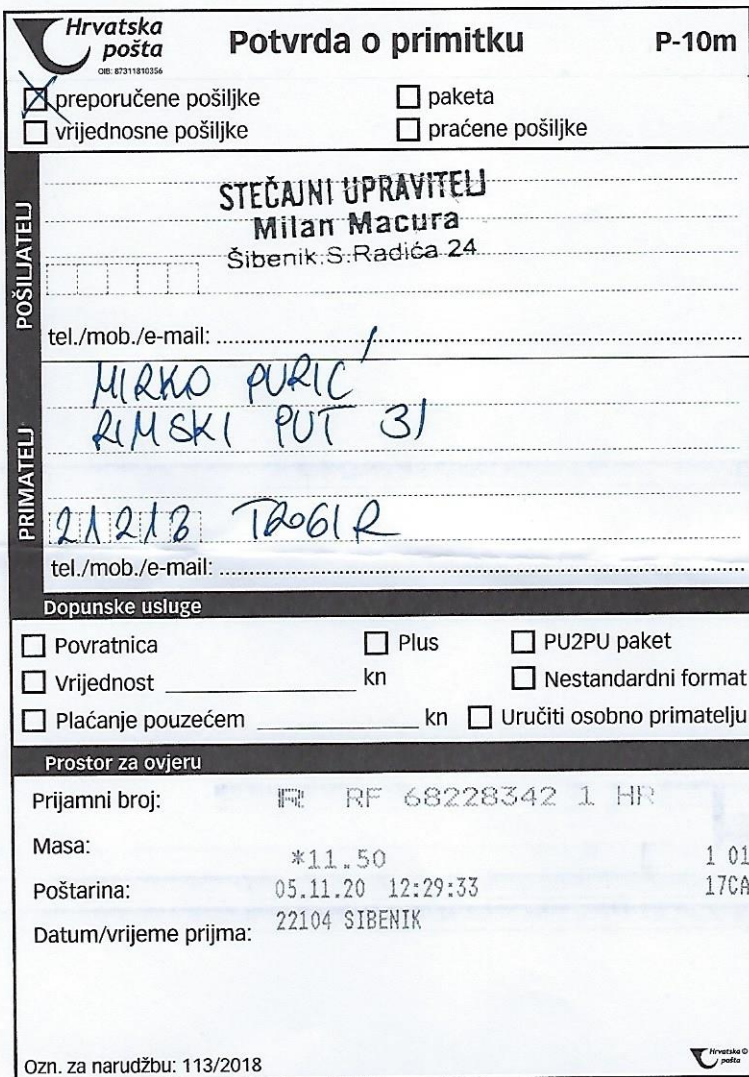 Hrvatska
pošta
OIB: 87311810356
Potvrda o primitku
P-10m
preporučene pošiljke
paketa
vrijednosne pošiljke
praćene pošiljke
POŠILJATELJ
STEČAJNI UPRAVITELJ
Milan Macura
Šibenik.S.Radića 24
tel./mob./e-mail:
PRIMATELJ
MIRKO PURIĆ
RIMSKI PUT 31
21213 TROGIR
tel./mob./e-mail:
Dopunske usluge
Povratnica
Plus
PU2PU paket
Vrijednost kn
Nestandardni format
Plaćanje pouzećem kn
Uručiti osobno primatelju
Prostor za ovjeru
Prijamni broj: R RF 68228342 1 HR
Masa:
*11.50 1 01
Poštarina: 05.11.20 12:29:33 17CA
Datum/vrijeme prijma: 22104 SIBENIK
Ozn. za narudžbu: 113/2018
Hrvatska
pošta